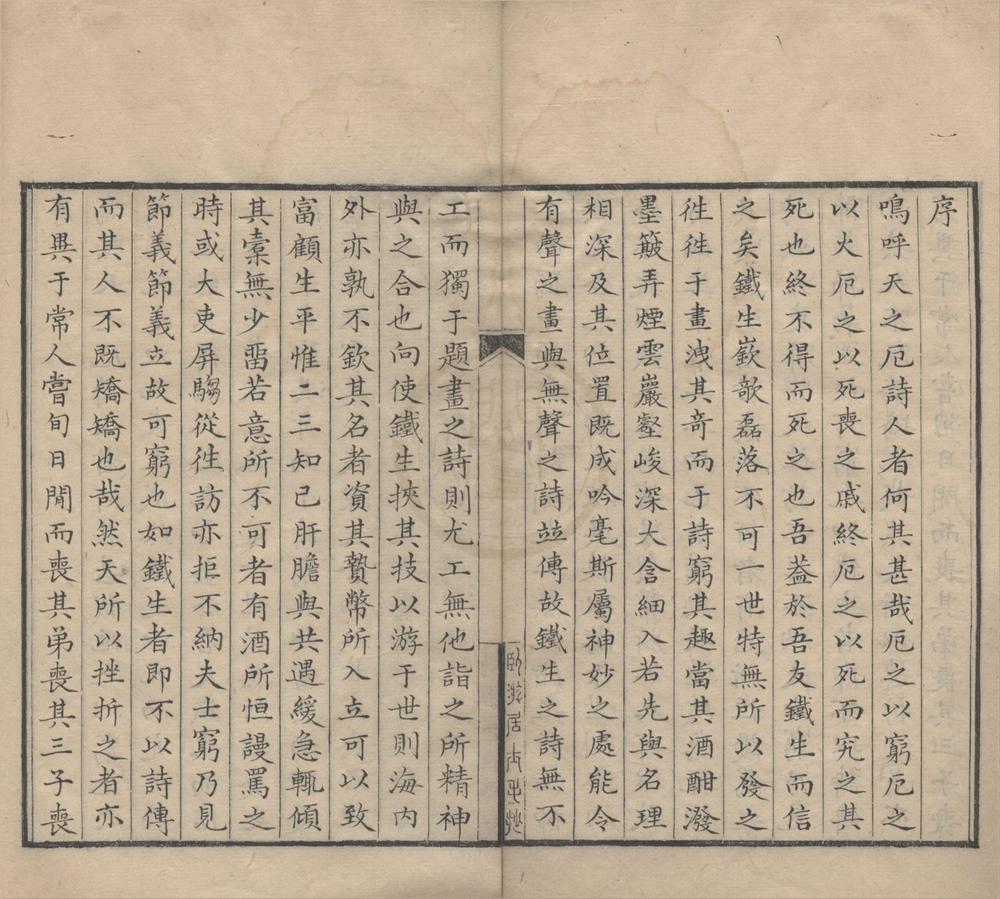 序
嗚呼天之厄詩人者何其甚哉厄之以窮厄之
以火厄之以死喪之戚終厄之以死而究之其
死也終不得而死之也吾葢於吾友鐵生而信
之矣鐵生嶔㱆磊落不可一世特無所以發之
徃徃于畫洩其奇而于詩窮其趣當其酒酣潑
墨簸弄煙雲巖壑峻深大含細入若先與名理
相深及其位置既成吟毫斯屬神妙之處能令
有聲之畫與無聲之詩竝傳故鐵生之詩無不
工而獨于題畫之詩則尤工無他詣之所精神
與之合也向使鐵生挾其技以游于世則海内
外亦孰不欽其名者資其贄幣所入立可以致
富顧生平惟二三知已肝膽與共遇緩急輒傾
其橐無少畱若意所不可者有酒所恒謾罵之
時或大吏屏騶從徃訪亦拒不納夫士窮乃見
節義節義立故可窮也如鐵生者即不以詩傳
而其人不既矯矯也哉然天所以挫折之者亦
有異于常人嘗旬日閒而喪其弟喪其三子喪